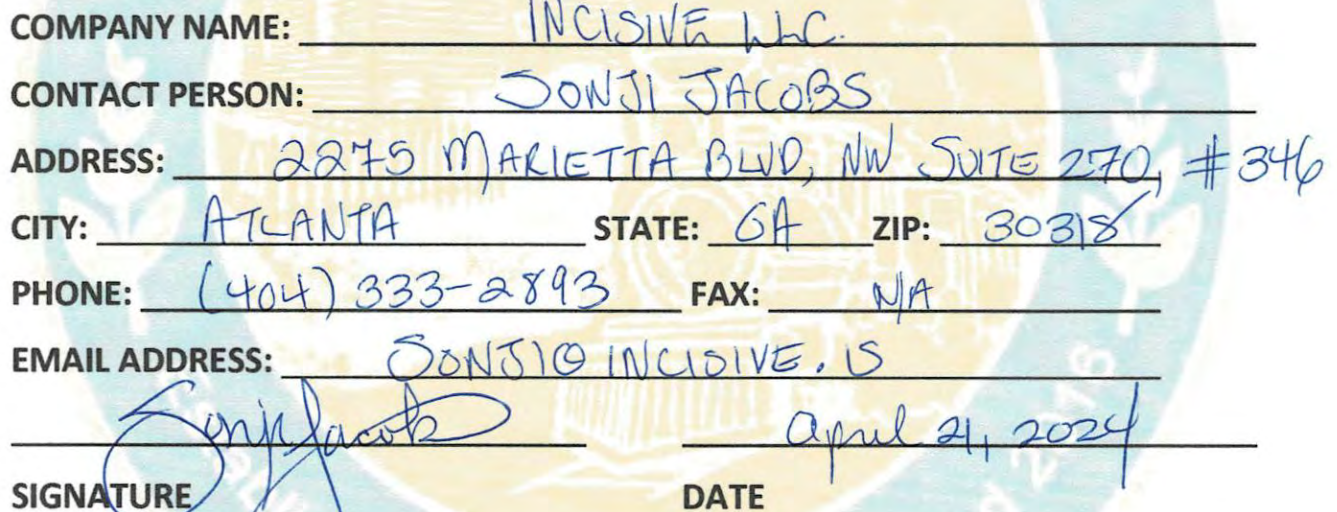 COMPANY NAME: INCISIVE LLC.
CONTACT PERSON: SONJI JACOBS
ADDRESS: 2275 MARIETTA BLVD, NW SUITE 270, #346
CITY: ATLANTA STATE: GA ZIP: 30318
PHONE: (404) 333-2893 FAX: N/A
EMAIL ADDRESS: SONJI@INCISIVE.IS
Sonji Jacobs april 21, 2024
SIGNATURE DATE